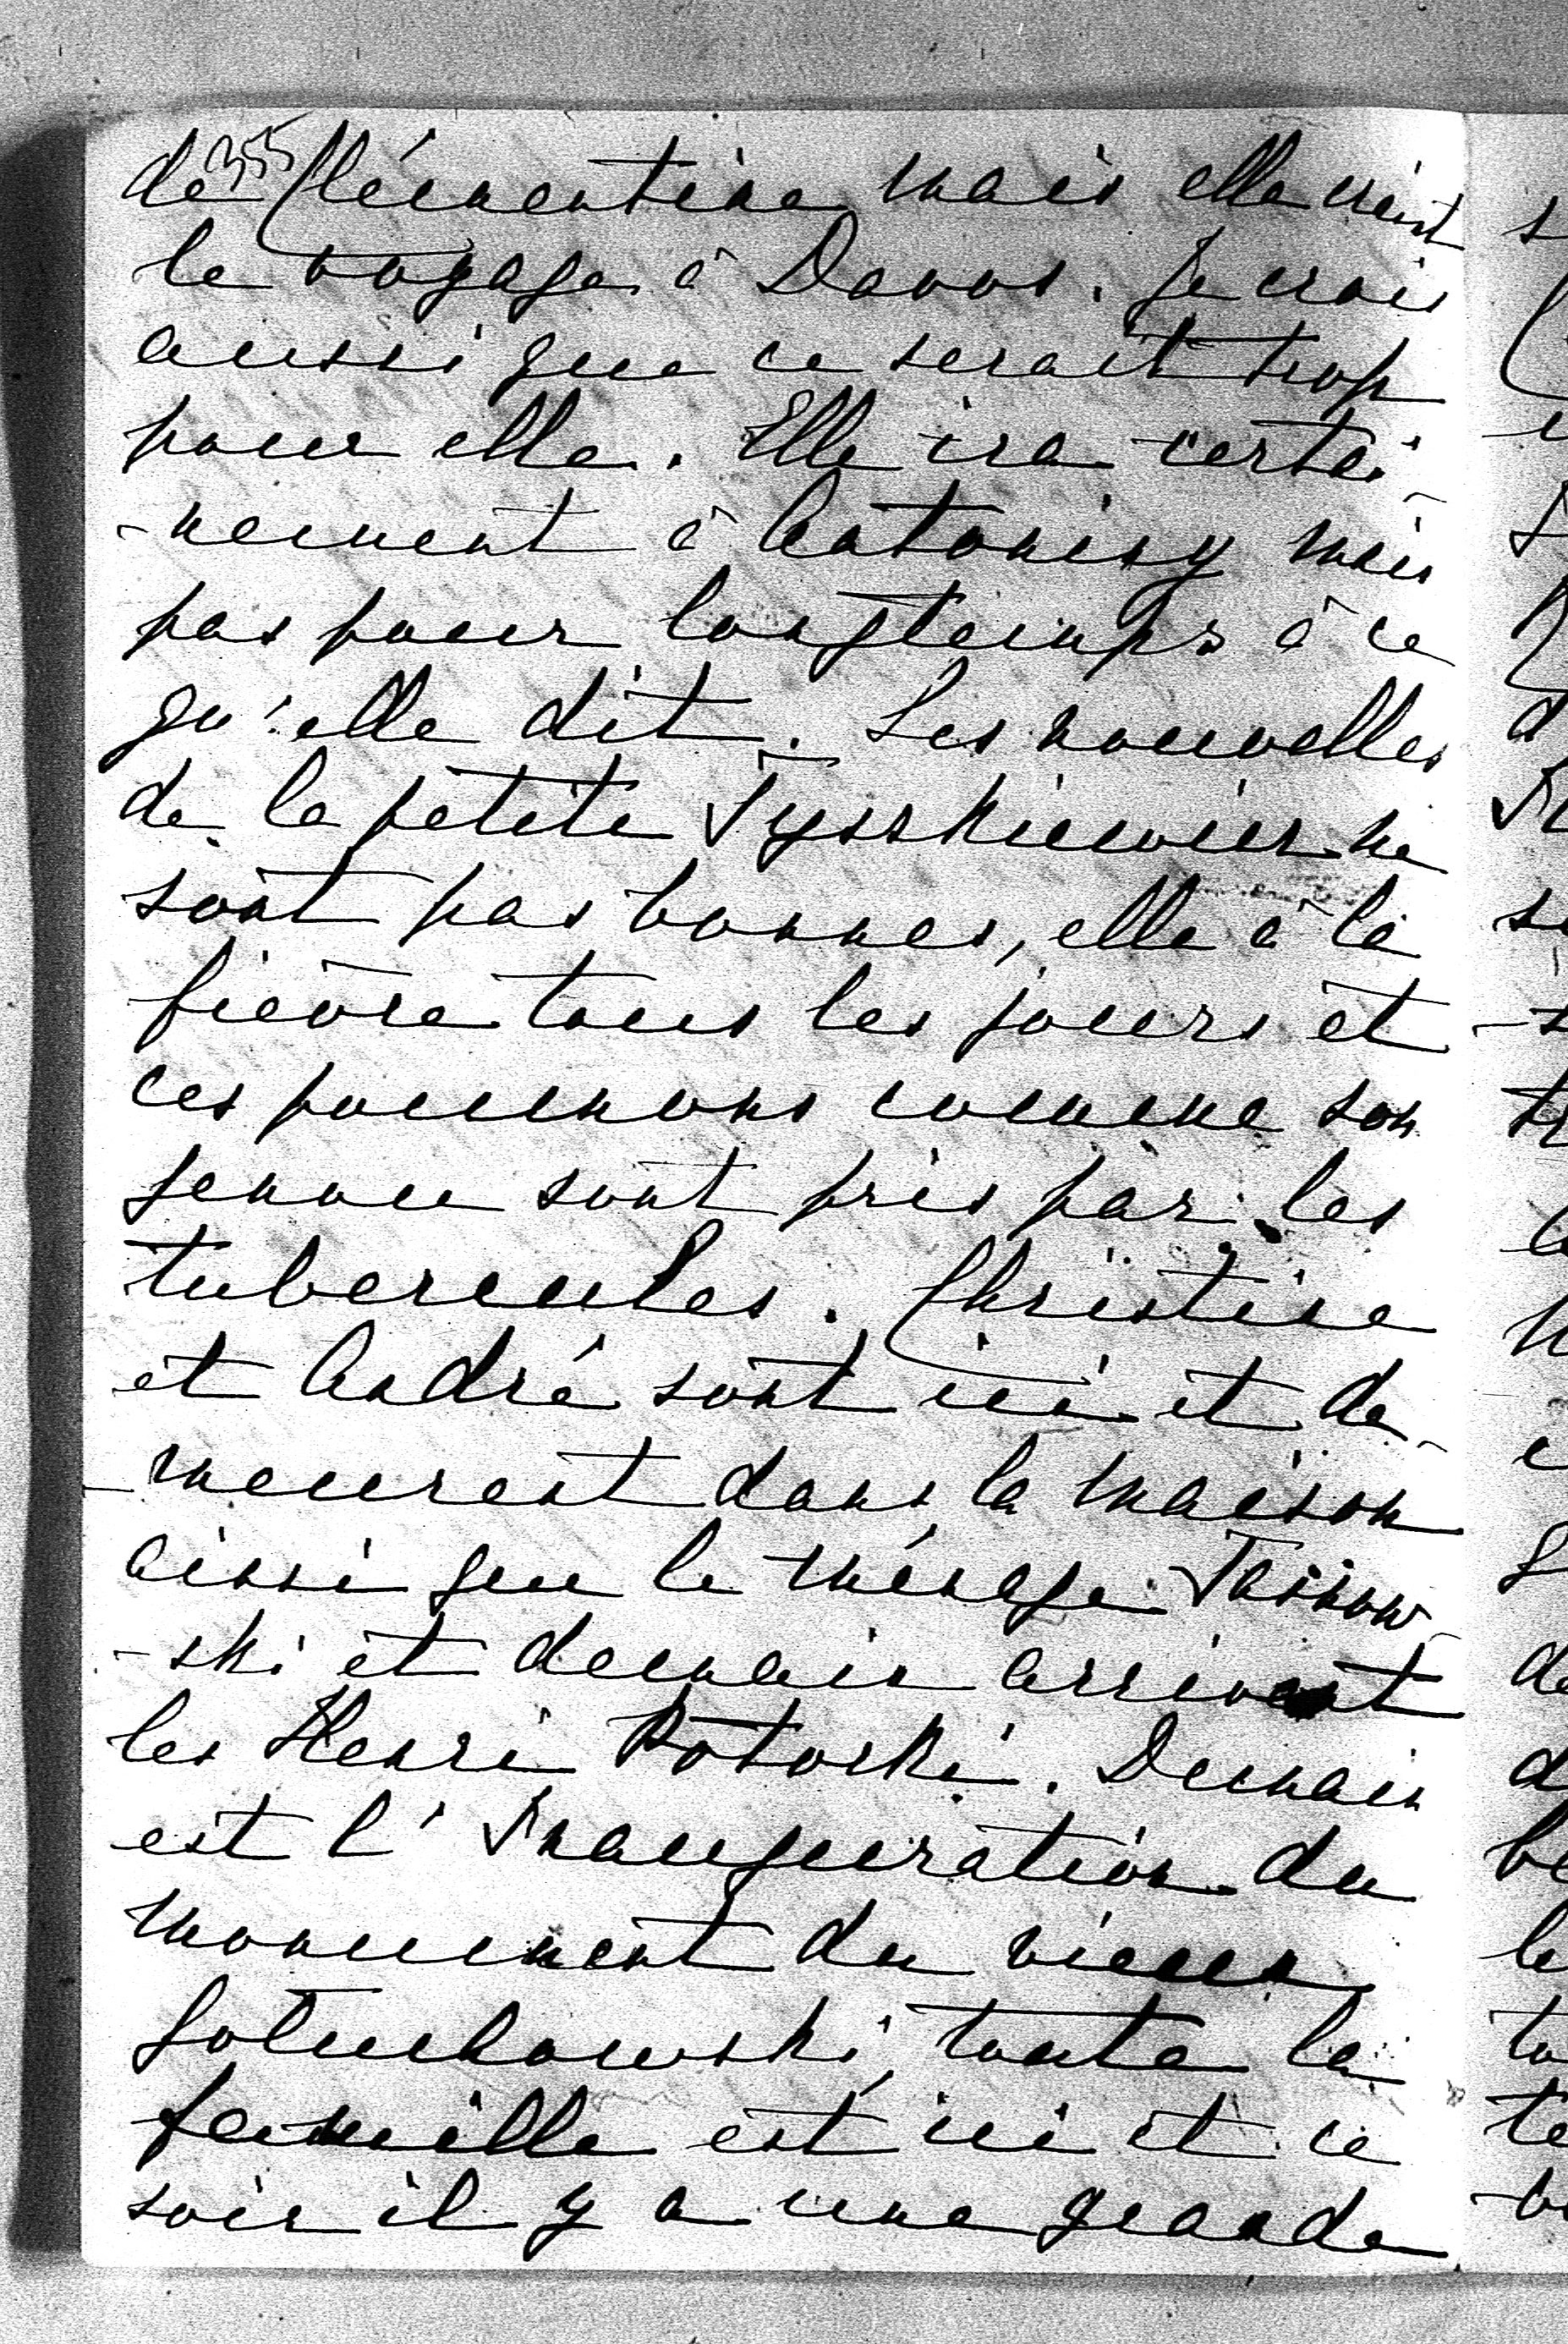 355
de Clémentine mais elle craint
le voyage à Davos. Je crois
aussi que ce serait trop
pour elle. Elle ira certai-
-nement à Antoniny mais
pas pour longtemps à ce
qu'elle dit. Les nouvelles
de la petite Tysskiewicz ne
sont pas bonnes, elle à la
fièvre tous les jours et
ces poumons comme son
genou sont pris par les
tubercules. Christine
et André sont ici et de-
-meurent dans la maison
ainsi que le ménage Tarnow-
-ski et demain arrivent
les Henri Potocki. Demain
est l'Inauguration du
monument du vieux
Goluchowski, toute la
famille est ici et ce
soir il y a une grande